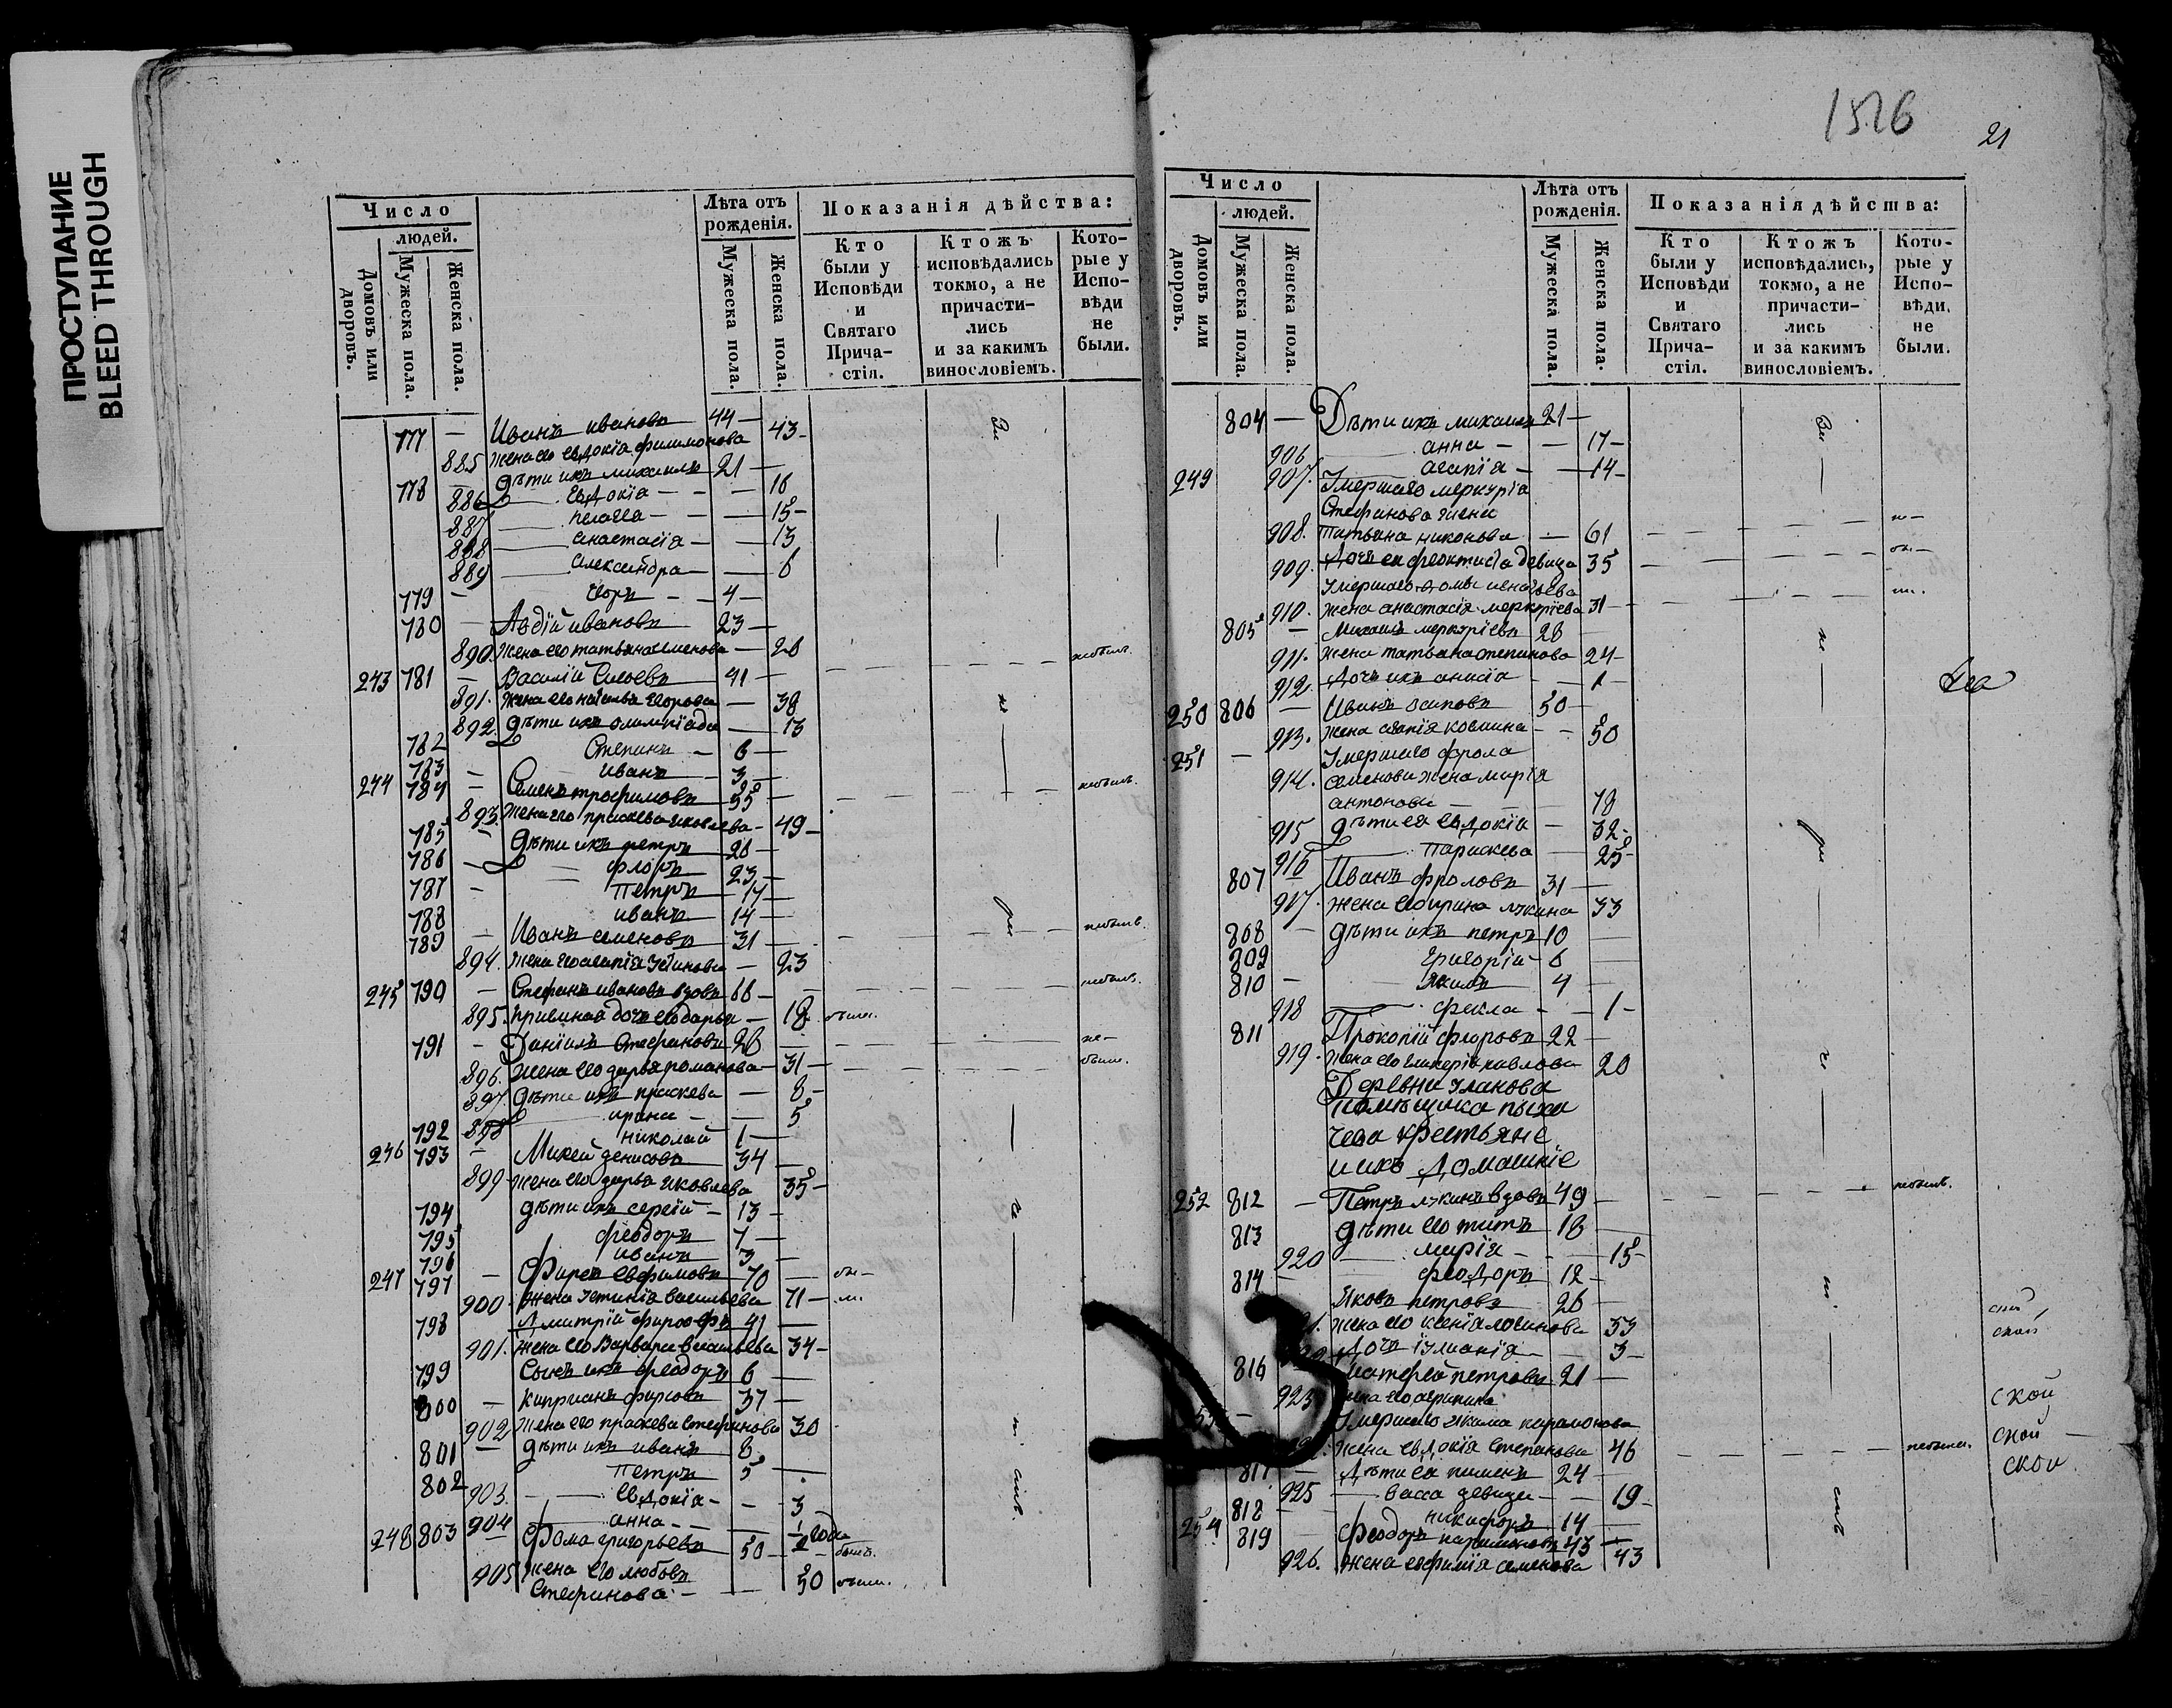 ПРОСТУПАНИЕ
BLEED THROUGH
Число
людей.
Домовъ или дворовъ.
Мужеска пола.
Женска пола.
Лѣта отъ рожденія.
Мужеска пола.
Женска пола.
Показанія дѣйства:
Кто были у Исповѣди и Святаго Прича- стія.
Ктожъ исповѣдались токмо, а не причасти- лись и за какимъ винословіемъ.
Кото- рые у Испо- вѣди не были.
777 — Иванъ Ивановъ 44 —
885 жена его евдокія филимонова 43 —
778 — дѣти ихъ михаилъ 21 —
886 евдокія — — 16
887 пелагея — — 15 —
888 анастасія — — 13
889 александра — 6
779 — егоръ — 4 —
780 — Авдій ивановъ 23 —
890. жена его татьяна семенова — 26
243 781 — Василій Сысоевъ 41 — небылъ.
891. жена его наталья егорова — 38
892. дѣти ихъ олимпіада — 13
782 Степанъ — 6 —
783 — иванъ — 3 —
244 784 — Семенъ трофимовъ 55 — небылъ.
893. жена его праскева яковлева — 49 —
785 — дѣти ихъ петръ 26 —
786 — флоръ 23 —
787 — петръ 17 —
788 иванъ 14 —
789 — Иванъ семеновъ 31 — небылъ.
894. жена его агапія устинова — 23
245 790 — Стефанъ ивановъ вдовъ 66 — небылъ.
895. дочь его дарья — 18
791 — Даніилъ Стефановъ 28 — не —
896. жена его дарья романова — 31 — были.
897. дѣти ихъ праскева — 8 —
898 ирина — — 5
792 николай 1 —
246 793 — Микей денисовъ 34 —
899 жена его дарья яковлева 35 —
794 дѣти ихъ сергій — 13 —
795 феодоръ 7 —
796 иванъ 3 —
247 797 — Фирсъ евфимовъ 70 —
900. жена устинія васильева 71 —
798 Дмитрій фирсовъ 41 —
901. жена его варвара васильева 34 —
799 Сынъ ихъ феодоръ 6 —
800 — киприанъ фирсовъ 37 —
902 жена его праскева стефанова 30
801 — дѣти ихъ иванъ 8
802 петръ 5 —
903. евдокія — — 3
904 анна — — 1/2 года
248 803 — Фома григорьевъ 50 — былъ.
905 жена его любовь
Стефанова — — 50 были.
1516
21
Число
людей.
Домовъ или дворовъ.
Мужеска пола.
Женска пола.
Лѣта отъ рожденія.
Мужеска пола.
Женска пола.
Показанія дѣйства:
Кто были у Исповѣди и Святаго Прича- стія.
Ктожъ исповѣдались, токмо, а не причасти- лись и за какимъ винословіемъ.
Кото- рые у Испо- вѣди, не были.
804 — Дѣти ихъ михаилъ 21 —
906 анна — — 17 —
907. агапія — — 14 —
249 Умершаго меркурія
Стефанова жена
908. татьяна никонова — 61 — не —
909. дочь ея феоктиста девица 35
Умершаго фомы игнатьева
910. жена анастасія меркуріева 31 —
805 — Михаилъ меркуріевъ 28
911. жена татьяна степанова 24 —
912. дочь ихъ анисія — 1 —
250 806 — Иванъ осиповъ 50 —
913. жена агапія космина — — 50
251 — Умершаго фрола
914. семенова жена марія
антонова — 78
915 дѣти ея евдокія — 32 —
916 параскева — 25 —
807 Иванъ фроловъ 31 —
917. жена его ирина лукина 33
808 — дѣти ихъ петръ 10
809 григорій — 6
810 — якимъ 4
918 фекла — — 1 —
811 Прокопій флоровъ 22 —
919. жена его гликерія павлова 20
Деревни Уланова
помѣщика пыха
чева крестьяне
и ихъ домашніе
252 812 — Петръ лукинъ вдовъ 49 — небылъ.
813 дѣти его титъ 18
920 марія — — 15 —
814 — феодоръ 12 —
Яковъ петровъ 26
жена его ксенія логинова 33
дочь іуліанія — 3 —
816 матфей петровъ 21 —
923 жена его агрипина
Умершаго якима парамонова
жена евдокія степанова 46 — небыла.
817 — дѣти ея пименъ 24
925 васса девица — — 19 —
818 никифоръ 14 —
254 819 феодоръ парамоновъ 43 —
926. жена евфимія семенова 43
ской
ской
ской
ской